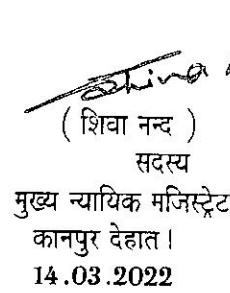 ( शिवा नन्द )
सदस्य
मुख्य न्यायिक मजिस्ट्रेट
कानपुर देहात।
14.03.2022